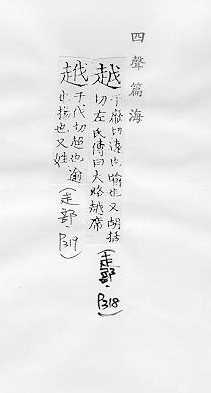 四聲篇海
越 于厥切遠也踰也又胡括
切左氏傳曰大路越席
(走部．P318)
越 于伐切超也逾
也揚也又姓(走部．P319)